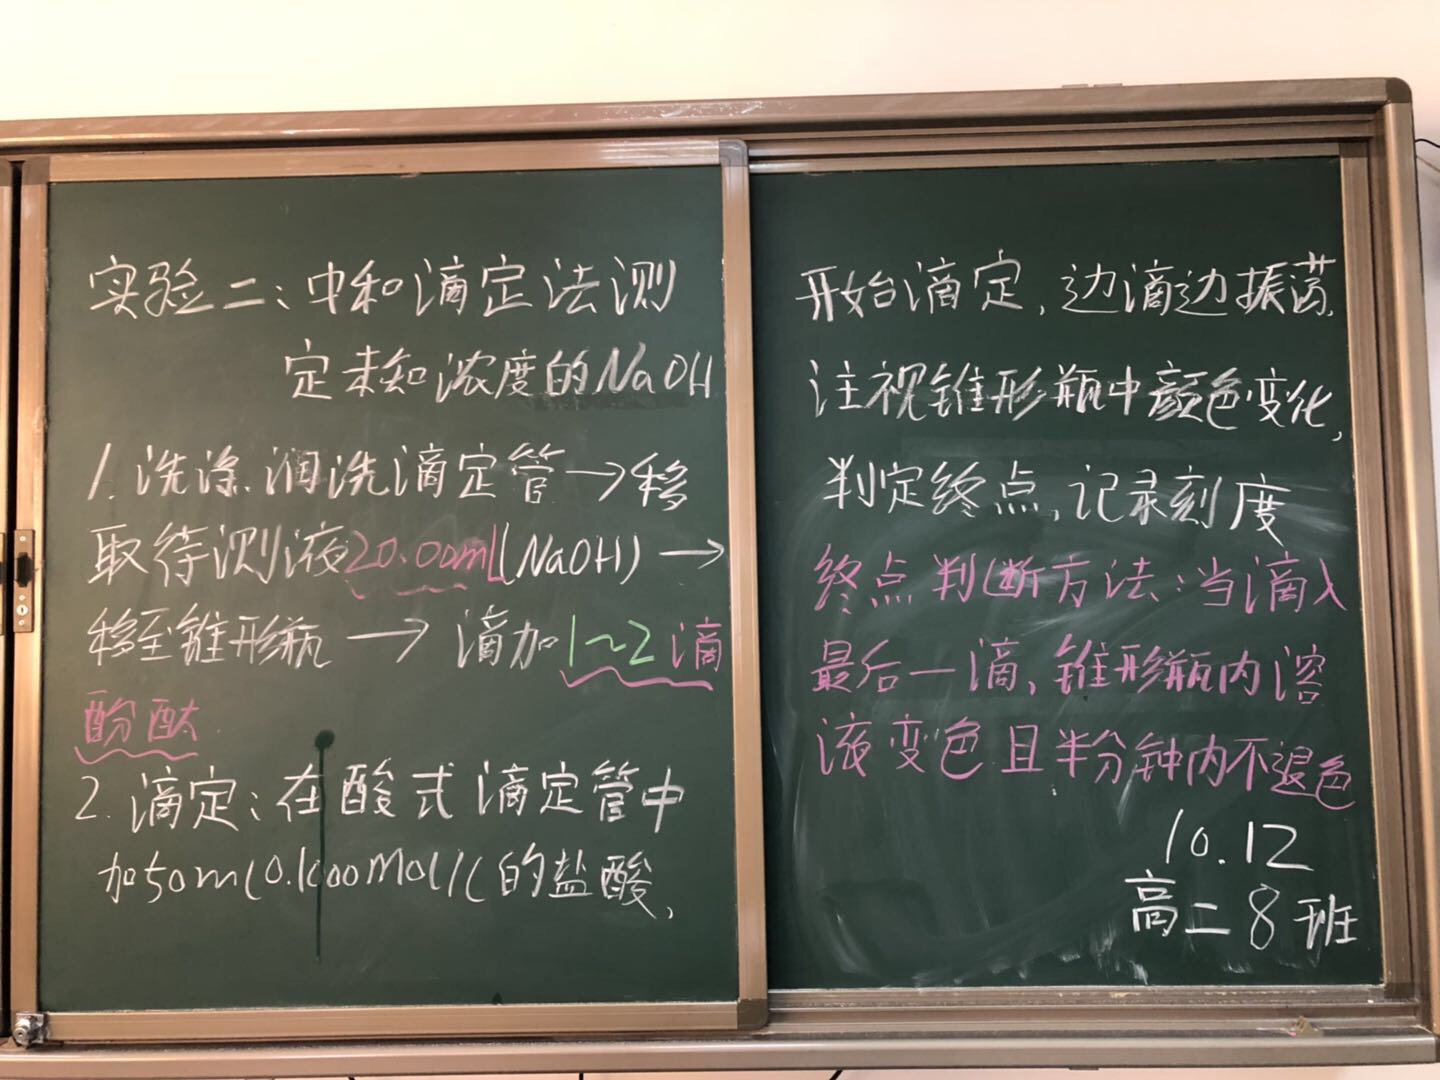 实验二:中和滴定法测
定未知浓度的NaOH
1.洗涤.润洗滴定管→移
取待测液20.00mL(NaOH)→
移至锥形瓶→滴加1~2滴
酚酞.
2.滴定:在酸式滴定管中
加50mL0.1000mol/L的盐酸,
开始滴定,边滴边振荡,
注视锥形瓶中颜色变化,
判定终点,记录刻度
终点判断方法:当滴入
最后一滴、锥形瓶内溶
液变色且半分钟内不退色
10.12
高二8班